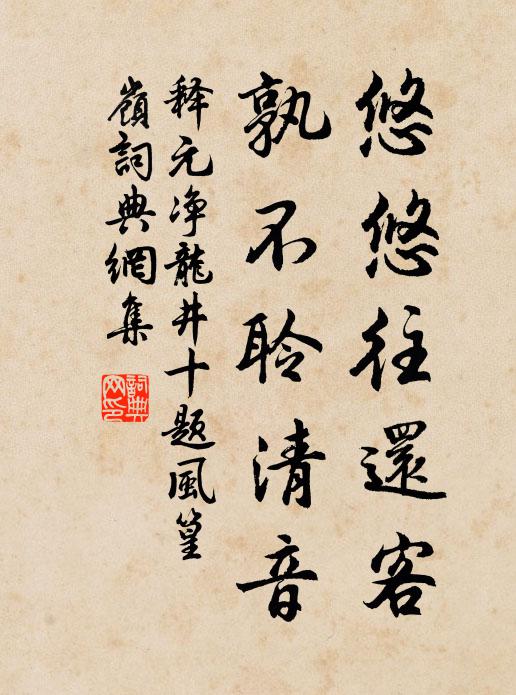 悠悠往還客
孰不聆清音
释元净龍井十题風篁
嶺詞典網集
詞典网印